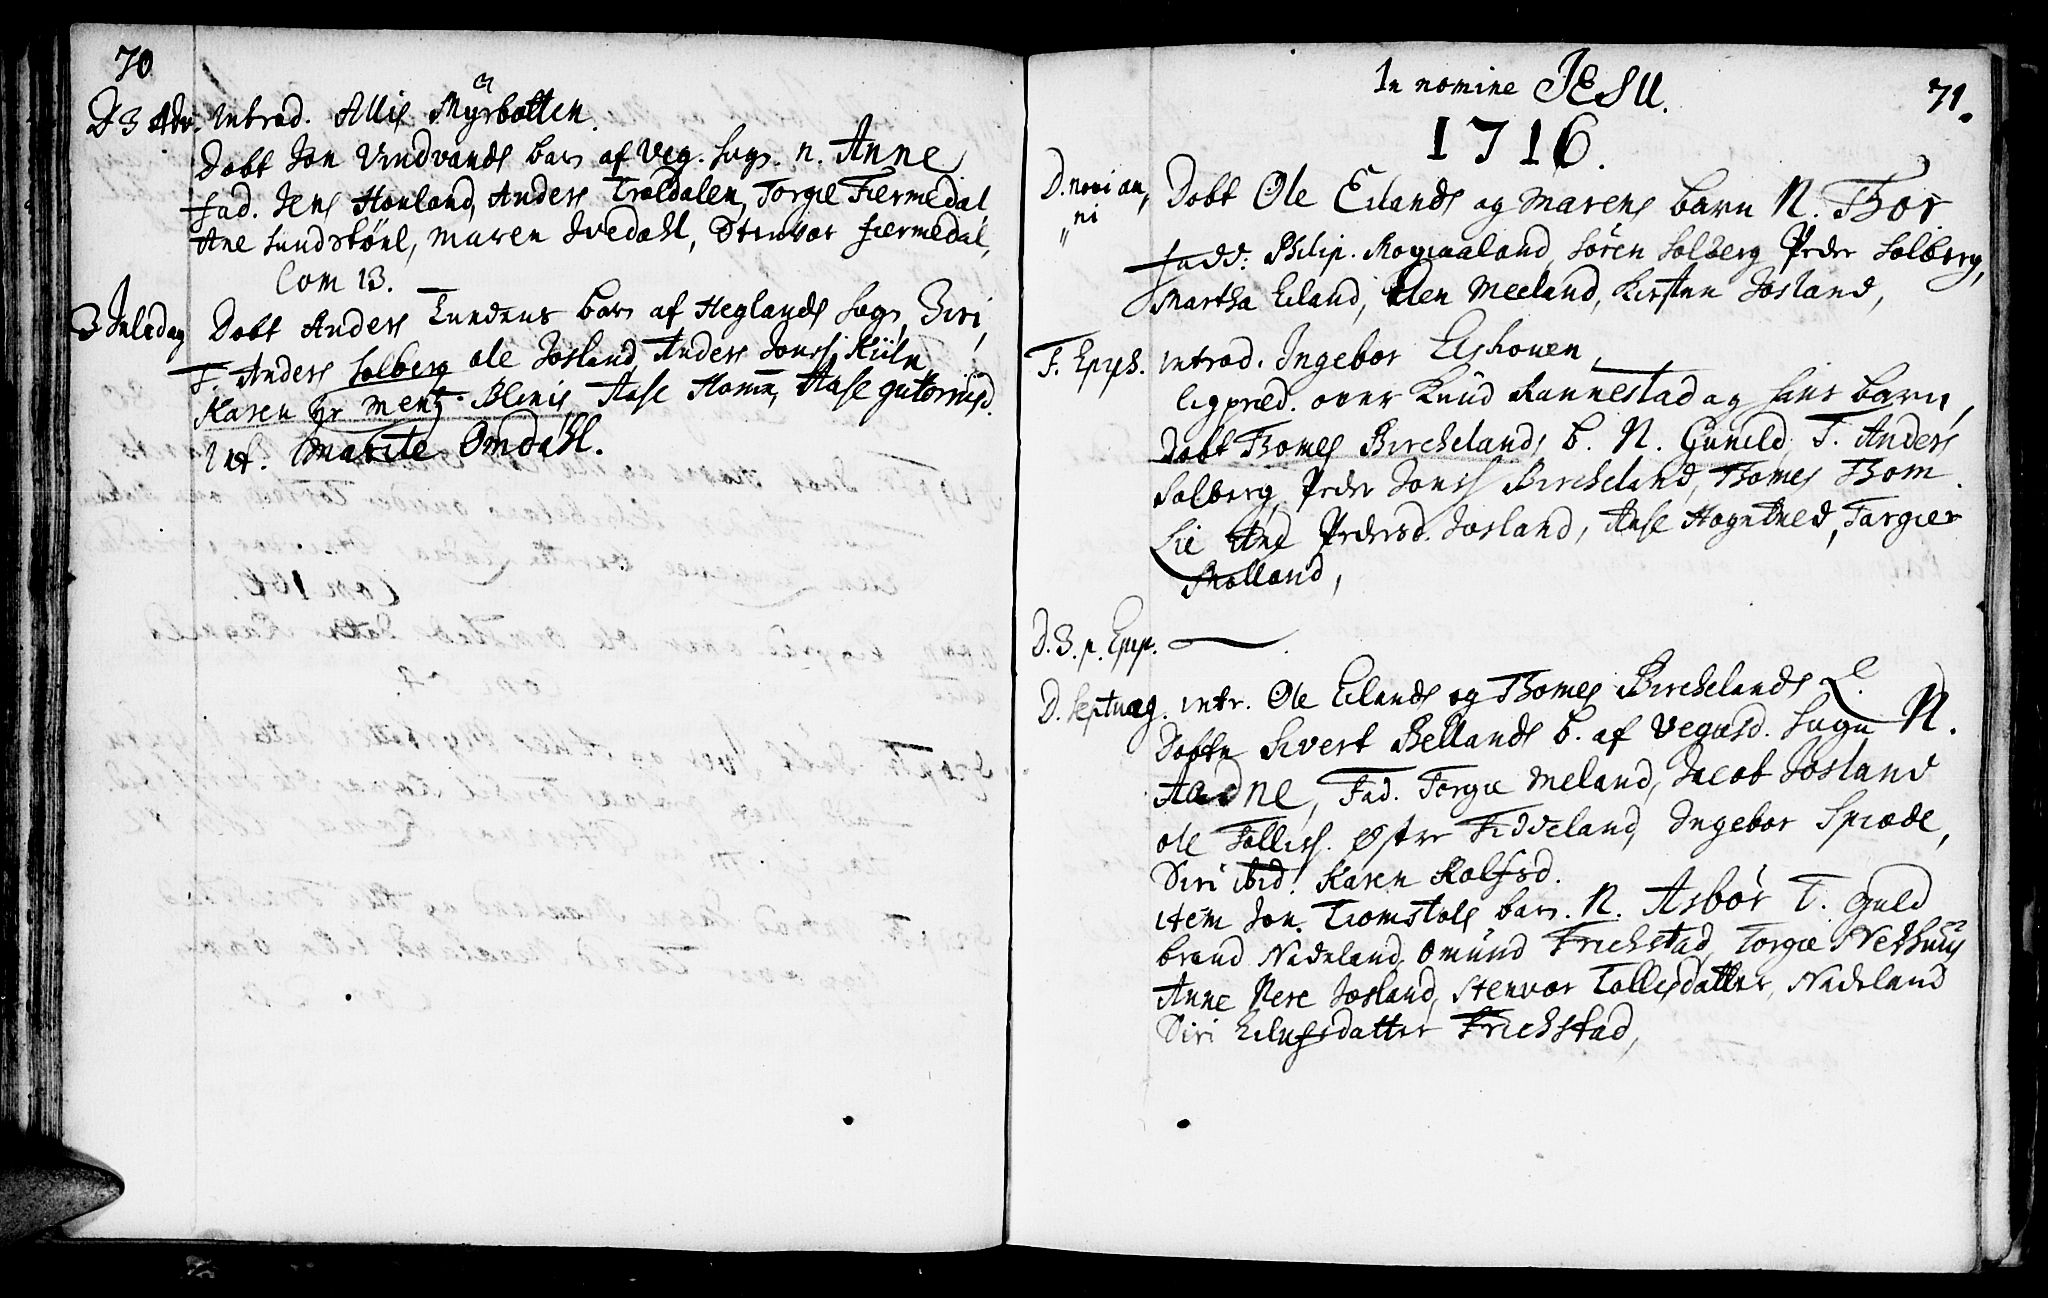 70
D 3 Adv. introd. Allis Myrbotten.
Dobt Jon Vindvands barn af Veg. sogn. n. Anne
fad. Jens Honland, Anders Troldalen, Torgie Fiermedal
Ane Lundstönl, Maren Ivedahl, Stenvor fiermedal,
Com 13.
3 Juledag Dobt Anders Lundens barn af Heglands sogn, Siri,
F. Anders Solberg ole Josland, Anders Jonss. Kiiln
Karen hr Mentz Blenis Aase Homm, Aase gutormsd.
Int. Marite Omdahl.
In nomine JESU. 71.
1716.
D. novi an, Dobt Ole Eilands og Marens barn N. Thor
ni
fadd: Philip. Rogiaaland, Sören Solberg Peder Solberg,
Martha Eiland, Elen Meeland, Kirsten Josland,
F. Epph. introd. Ingebor Eishouen,
ligpræd. over Knud Rannestad og hans barn,
Dobt Thomes Bircheland, b. N. Gunild, F. Anders
Solberg, Peder Jonss Bircheland, Thomes Thom.
Lie Ane Pedersd. Josland, Aase Hogntued, Targier
Skolland,
D. 3. p. Epp.
D. septuag. intr. Ole Eilands og Thomes Birchelands L.
Dobte Sivert Bellands b. af Vegusd. Sogn N.
Aadne, Fad. Torgie Meland, Jacob Josland
ole Tollefs. Østre Fidveland, Ingebor Spræde,
Siri ibid. Karen Rolfsd.
item Jon. Tromstols barn. N. Asbör F. Guld
brand Nadeland Omünd Frichstad, Torgie Nedhuus
Anne Nere Josland, Stenvor Tollesdatter, Nadeland
Siri Eilufsdatter Frichstad,